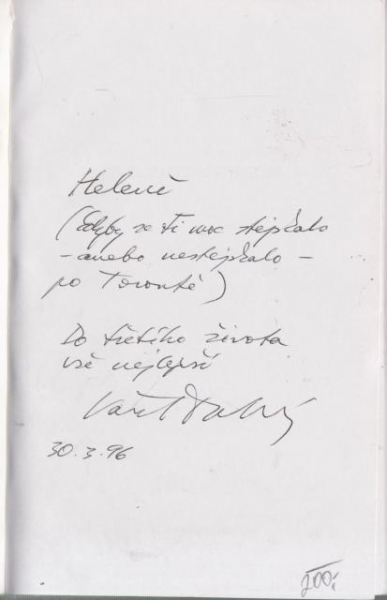 Heleně
(Kdyby se ti moc stejskalo
- anebo nestejskalo -
po Torontě)
Do třetího života
vše nejlepší
30.3.96
200,-